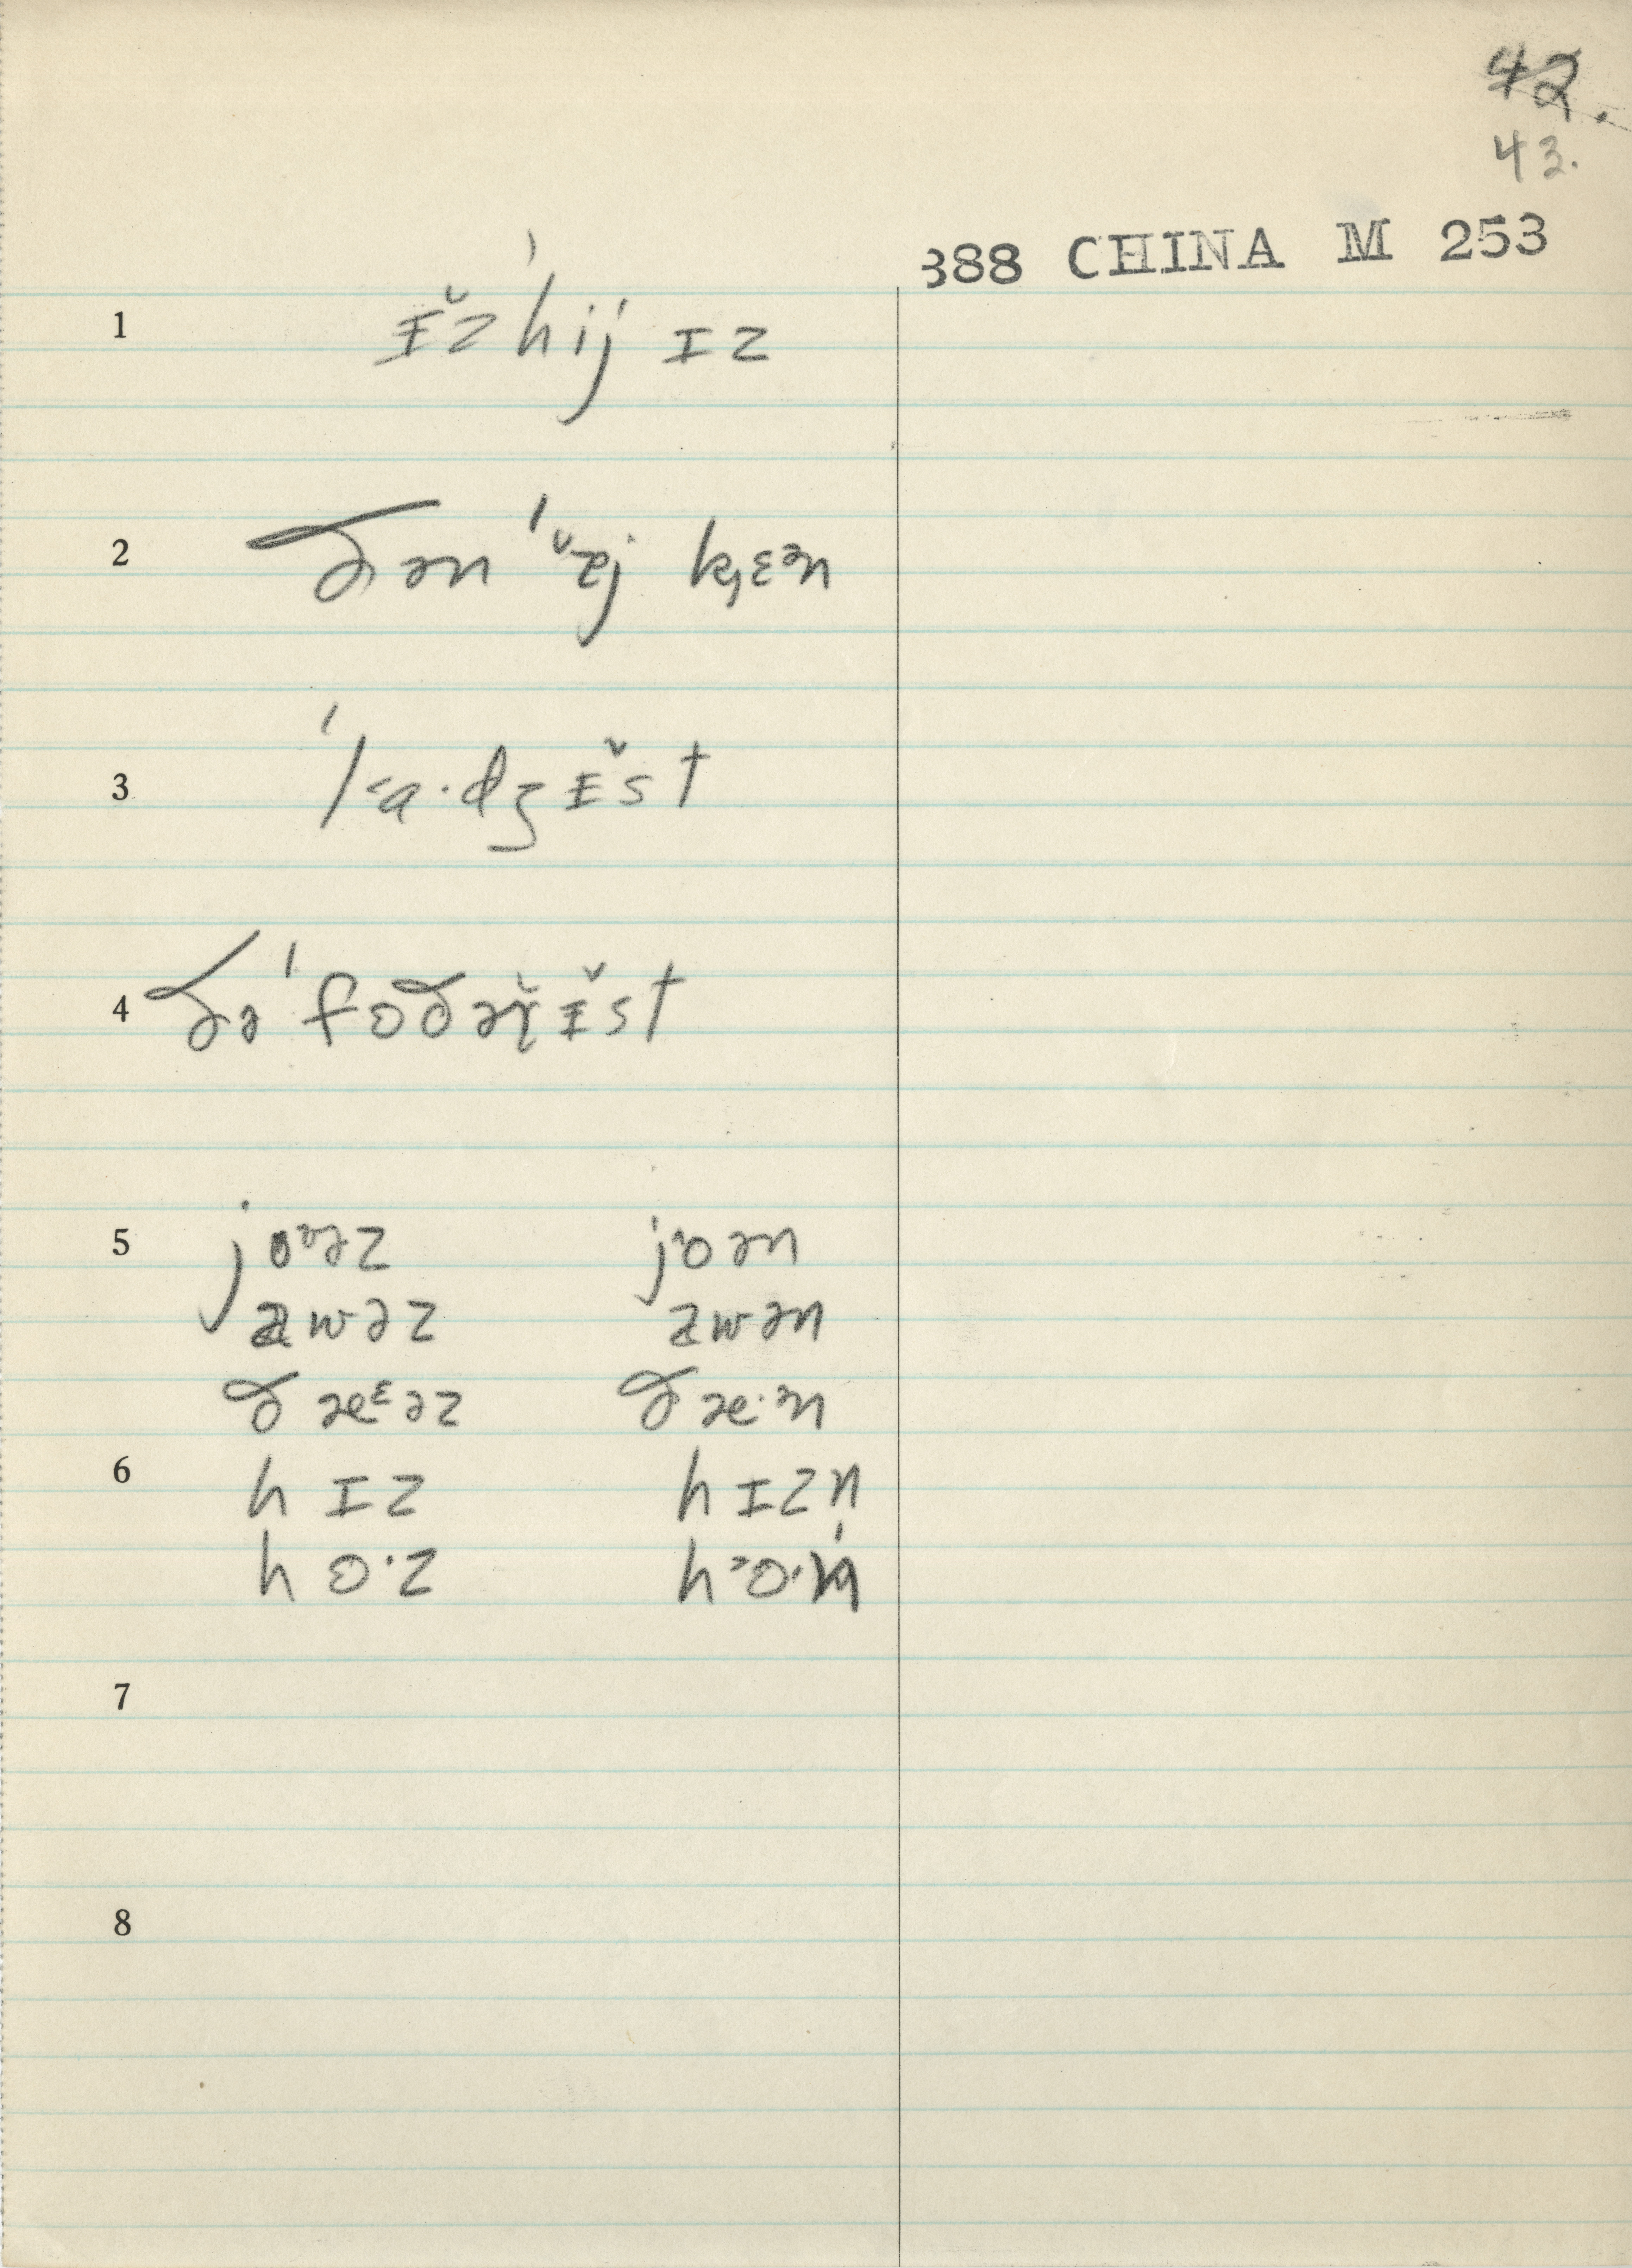 42.
43.
388 CHINA M 253
1 ɪ̆z ˈhij ɪz
2 ðən ˈɪ̆j kɛən
3 ˈlaˑdʒɪ̆st
4 ðə ˈfɒðəɪ̆st
5 joəz joən
awəz awən
ðæᵋəz ðæˑᵊn
6 hɪz hɪzn
hoˑz hoˑn
7
8